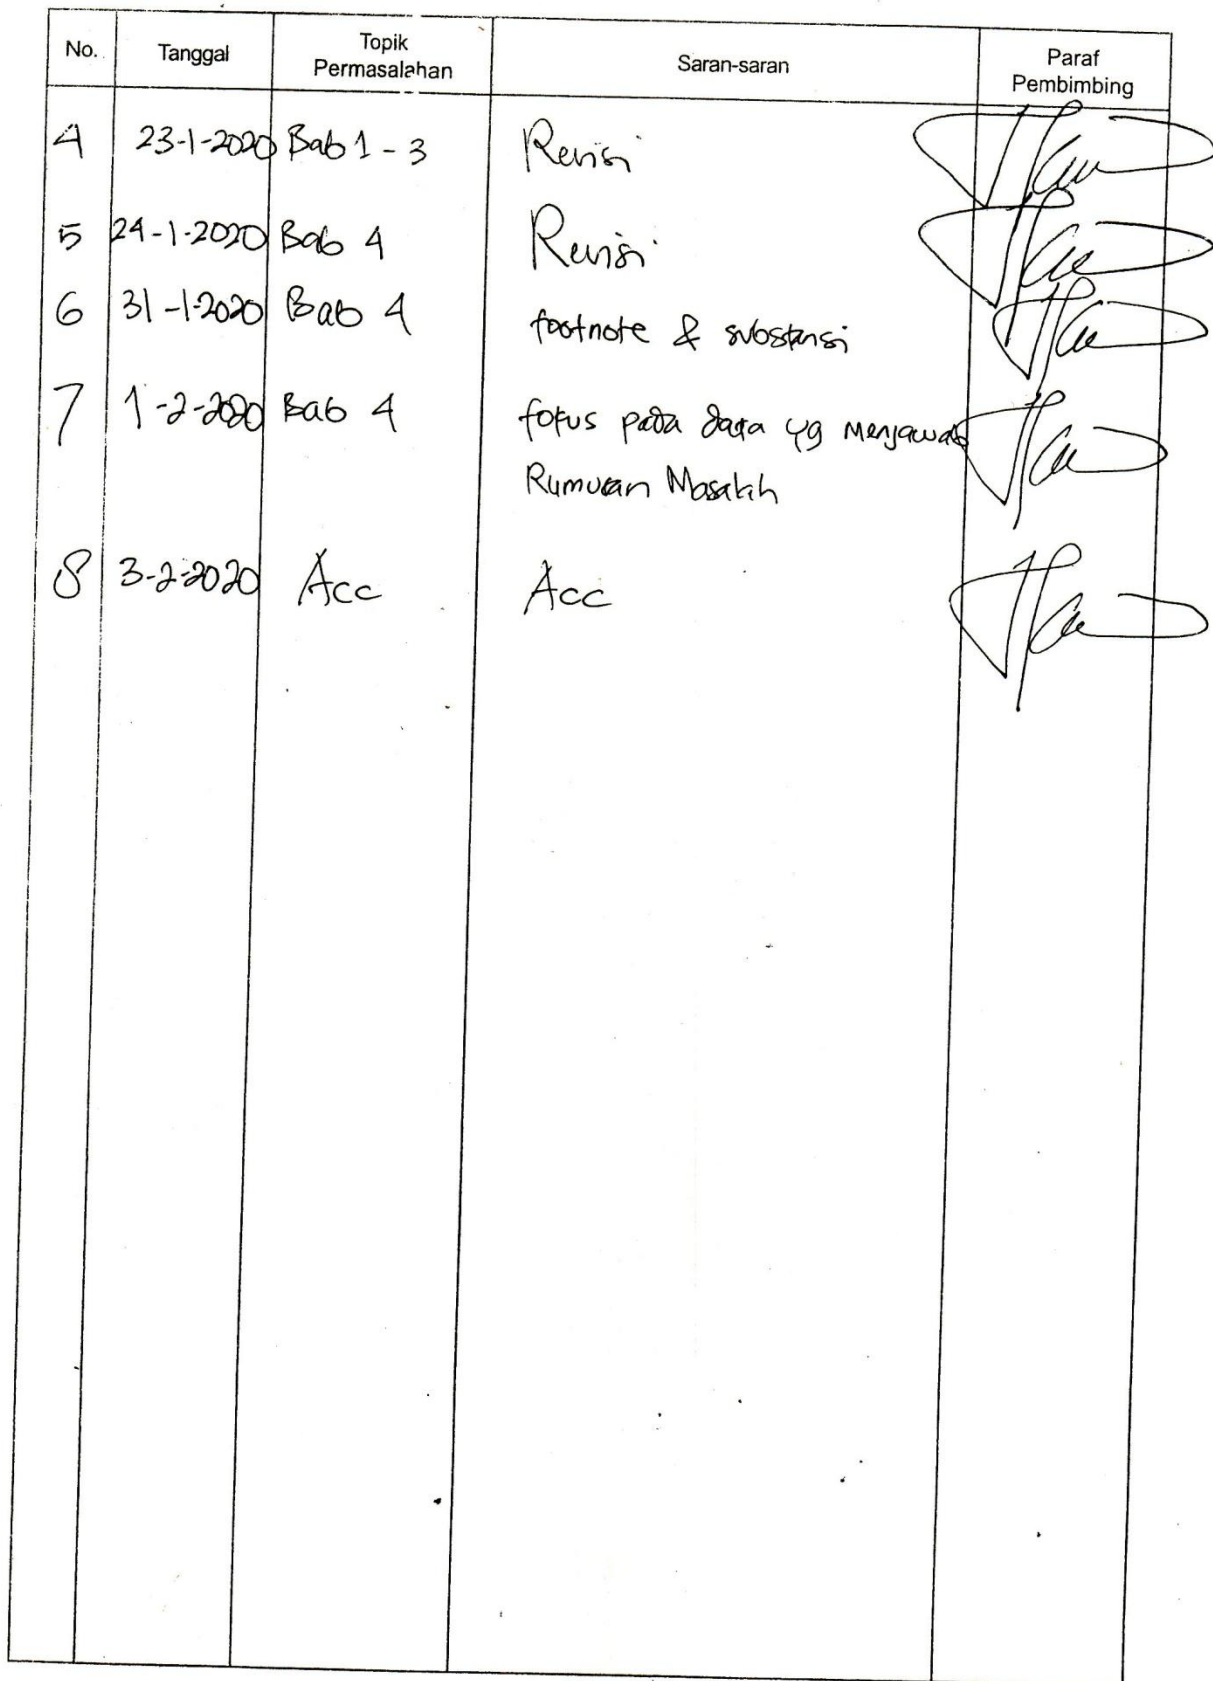 No. Tanggal Topik Permasalahan Saran-saran Paraf Pembimbing
4 23-1-2020 Bab 1 - 3 Revisi
5 24-1-2020 Bab 4 Revisi
6 31-1-2020 Bab 4 footnote & substansi
7 1-2-2020 Bab 4 fokus pada data yg menjawab
Rumusan Masalah
8 3-2-2020 Acc Acc